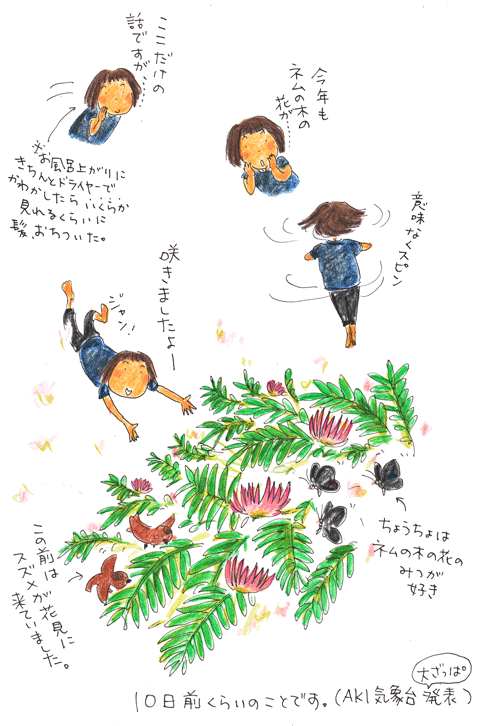 ここだけの
話ですが、……
※お風呂上がりに
きちんとドライヤーで
かわかしたら いくらか
見れるくらいに
髪、おちついた。
今年も
ネムの木の
花が……
意味なくスピン
咲きましたよー
ジャン!
ちょうちょは
ネムの木の花の
みつが
好き
この前は
スズメが花見に
来ていました。
大ざっぱ。
10日前くらいのことです。(AKI気象台 発表)